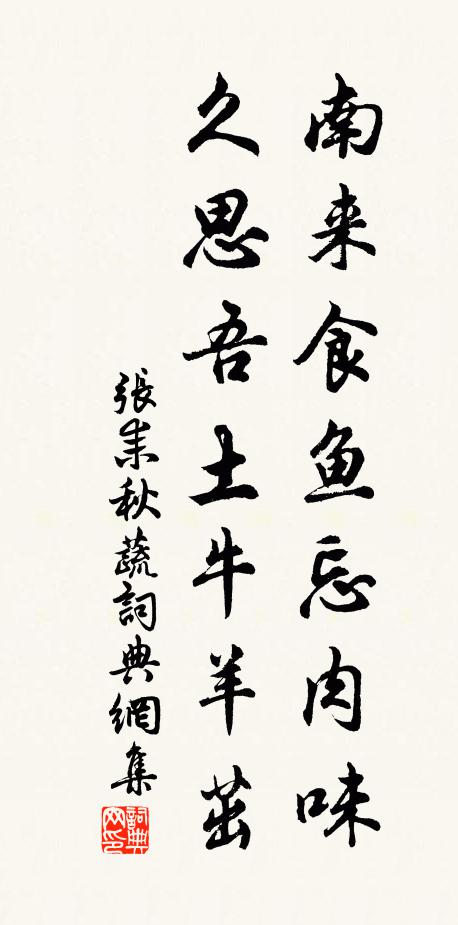 南来食鱼忘肉味
久思吾土牛羊茁
張耒秋蔬詞典網集
詞典网印